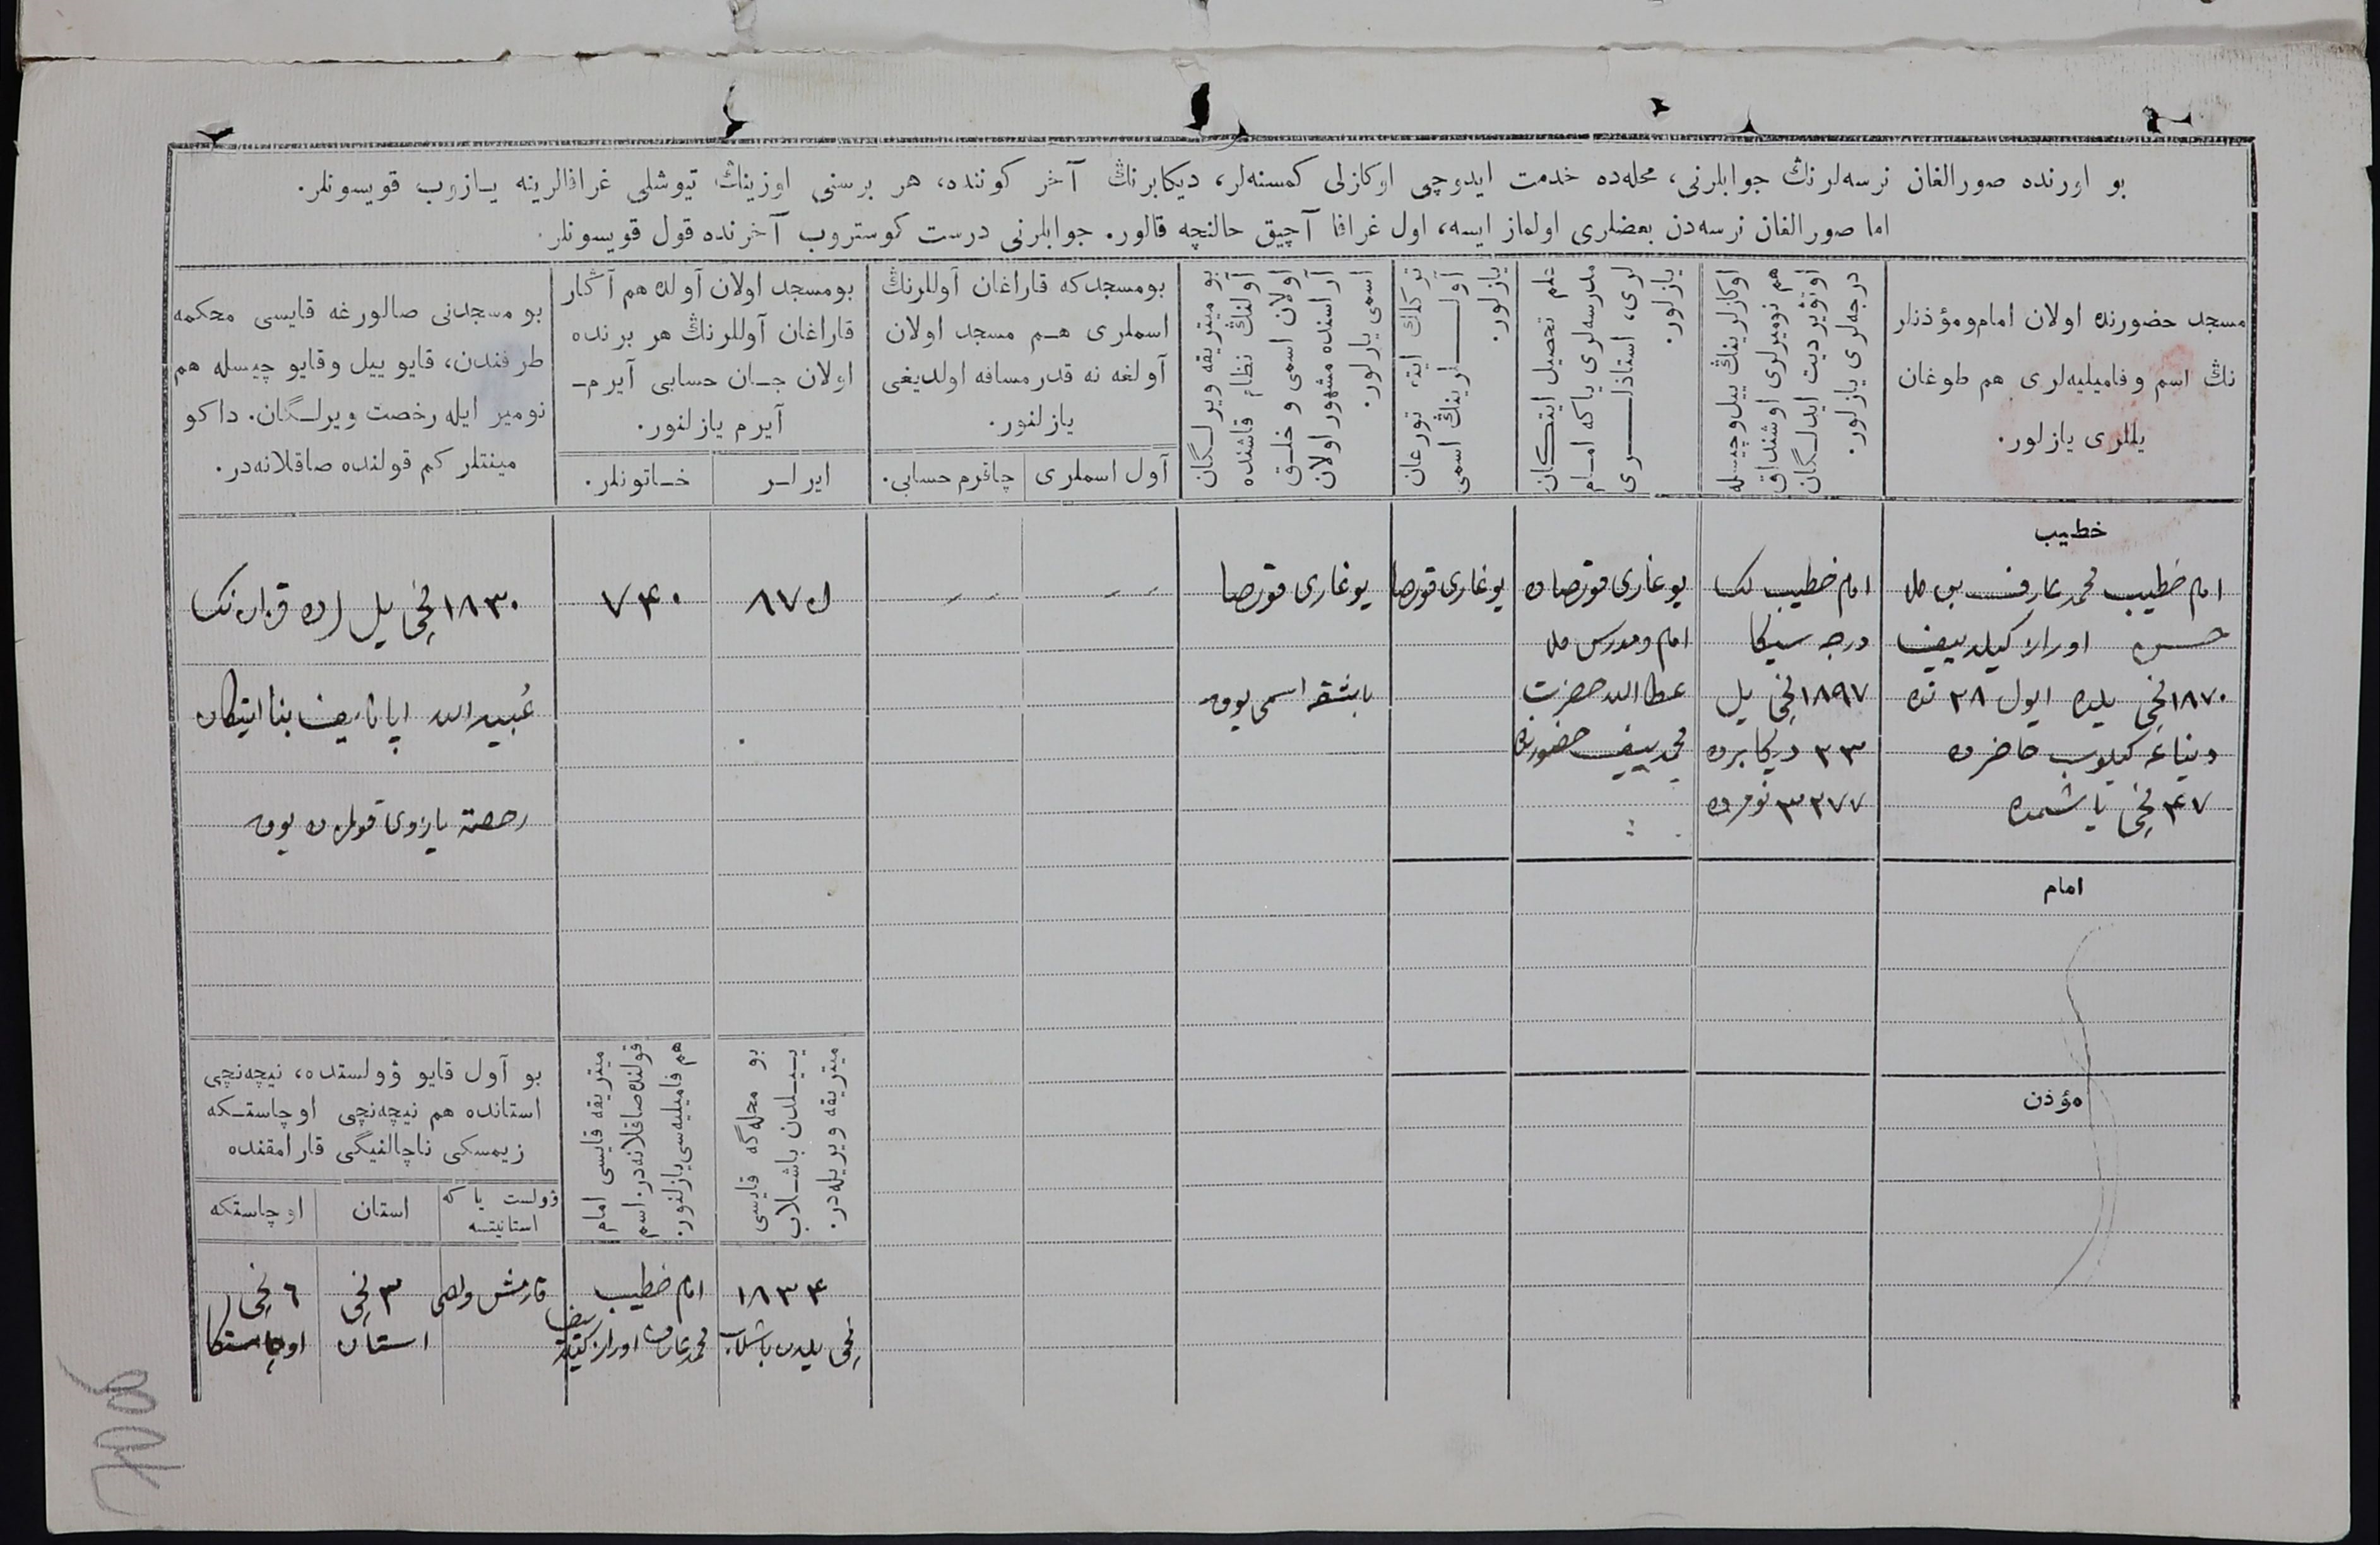 بو اورنده صورالغان نرسه‌لرنڭ جوابلرنی، محله‌ده خدمت ایدوچی اوکازلی کمسنه‌لر، دیکابرنڭ آخر کوننده، هر برسنی اوزینڭ تیوشلی غرافالرینه یازوب قویسونلر.
اما صورالغان نرسه‌دن بعضلری اولماز ایسه، اول غرافا آچیق حالنچه قالور. جوابلرنی درست کوستروب آخرنده قول قویسونلر.
مسجد حضورنده اولان امام‌ومؤذنلر
نڭ اسم وفامیلیه‌لری هم طوغان
یللری یازلور.
اوکازلرینڭ ییل‌وچیسله
هم نومیرلری اوشنداق
اوتویردیت ایدلگان
درجه‌لری یازلور.
علم تحصیل ایتکان
مدرسه‌لری یاکه امام
لری، استاذلری
یازلور.
ترکلك ایته تورغان
آوللرینڭ اسمی
یازلور.
بو میتریقه ویرلگان
آولنڭ نظام قاشنده
اولان اسمی و خلق
آراسنده مشهور اولان
اسمی یازلور.
بومسجدکه قاراغان آوللرنڭ
اسملری هم مسجد اولان
آولغه نه قدر مسافه اولدیغی
یازلنور.
آول اسملری
چاقرم حسابی.
بومسجد اولان آولده هم آڭار
قاراغان آوللرنڭ هر برنده
اولان جان حسابی آیرم-
آیرم یازلنور.
ایرلر
خاتونلر.
بو مسجدنی صالورغه قایسی محکمه
طرفندن، قایو ییل وقایو چیسله هم
نومیر ایله رخصت ویرلگان. داکو
مینتلر کم قولنده صاقلانه‌در.
خطیب
امام خطیب محمد عارف بن ملا
حسن اورازکیلدییف
۱۸۷۰ نچی یلده ایول ۲۸ نده
دنیاغه کیلوب حاضرده
۴۷ نچی یاشمده
امام خطیب لک
درجه سینکا
۱۸۹۷ نچی یل
۲۳ دیکابرده
۳۲۷۷ نومرده
یوغاری قورصاده
امام ومدرس ملا
عطاالله حضرت
محمدییف حضورنده
یوغاری قورصا
یوغاری قورصا
باشقه اسمی یوق
۸۷۵
۷۴۰
۱۸۳۰ نچی یل لرده قزان نک
عبیدالله اپانایف بنا ایتکان
رخصة یازوی قوللرده یوق
امام
مؤذن
بو محله‌گه قایسی
ییلدن باشلاب
میتریقه ویریله‌در.
میتریقه قایسی امام
قولنده‌صاقلانه‌در. اسم
هم فامیلیه‌سی یازلنور.
بو آول قایو ؤولستده، نیچه‌نچی
استانده هم نیچه‌نچی اوچاستکه
زیمسکی ناچالنیگی قارامقنده
ؤولست یا که
استانیتسه
استان
اوچاستکه
۱۸۳۴
نچی یلدن باشلاب
امام خطیب
محمد عارف اورازکیلدییف
قارمش ولصی
۳ نچی
استان
۶ نچی
اوچاستکا